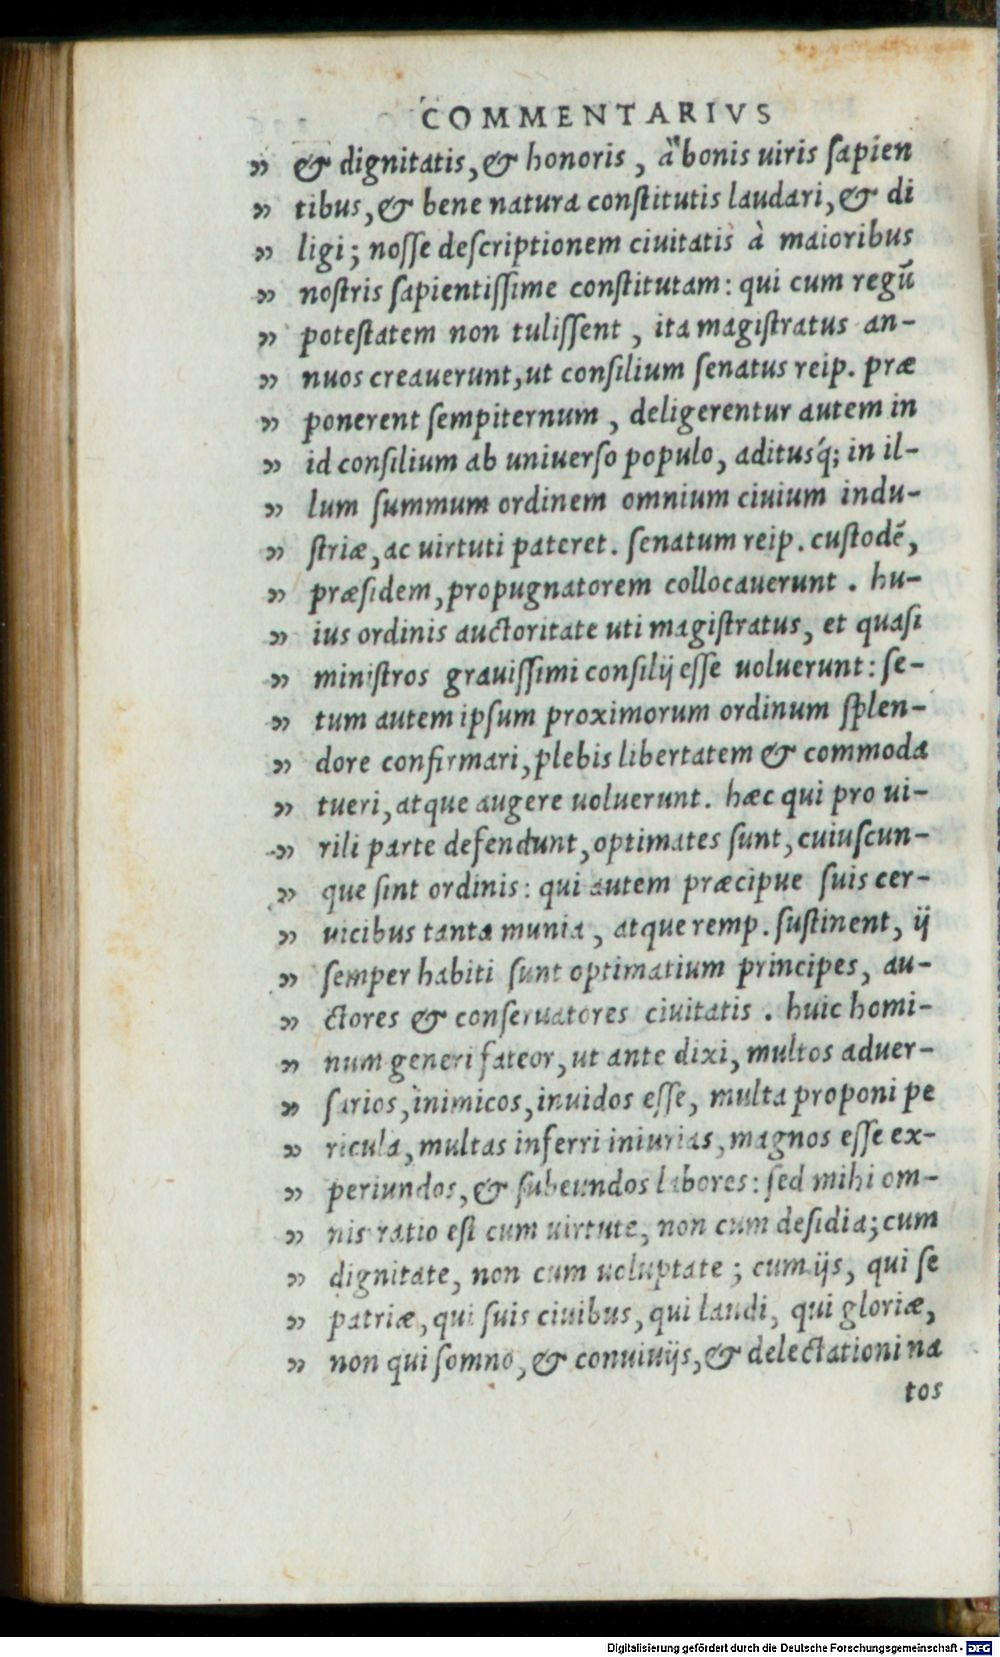 COMMENTARIVS
„ & dignitatis, & honoris, à bonis uiris ſapien
„ tibus, & bene natura conſtitutis laudari, & di
„ ligi; noſſe deſcriptionem ciuitatis à maioribus
„ noſtris ſapientiſſime conſtitutam: qui cum regū
„ poteſtatem non tuliſſent, ita magiſtratus an-
„ nuos creauerunt, ut conſilium ſenatus reip. præ
„ ponerent ſempiternum, deligerentur autem in
„ id conſilium ab uniuerſo populo, aditusq́; in il-
„ lum ſummum ordinem omnium ciuium indu-
„ ſtriæ, ac uirtuti pateret. ſenatum reip. cuſtodē,
„ præſidem, propugnatorem collocauerunt. hu-
„ ius ordinis auctoritate uti magiſtratus, et quaſi
„ miniſtros grauiſſimi conſilij eſſe uoluerunt: ſe-
„ tum autem ipſum proximorum ordinum ſplen-
„ dore confirmari, plebis libertatem & commoda
„ tueri, atque augere uoluerunt. hæc qui pro ui-
„ rili parte defendunt, optimates ſunt, cuiuſcun-
„ que ſint ordinis: qui autem præcipue ſuis cer-
„ uicibus tanta munia, atque remp. ſuſtinent, ij
„ ſemper habiti ſunt optimatium principes, au-
„ ctores & conſeruatores ciuitatis. huic homi-
„ num generi fateor, ut ante dixi, multos aduer-
„ ſarios, inimicos, inuidos eſſe, multa proponi pe
„ ricula, multas inferri iniurias, magnos eſſe ex-
„ periundos, & ſubeundos labores: ſed mihi om-
„ nis ratio eſt cum uirtute, non cum deſidia; cum
„ dignitate, non cum uoluptate; cum ijs, qui ſe
„ patriæ, qui ſuis ciuibus, qui laudi, qui gloriæ,
„ non qui ſomno, & conuiuijs, & delectationi na
tos
Digitalisierung gefördert durch die Deutsche Forschungsgemeinschaft - DFG